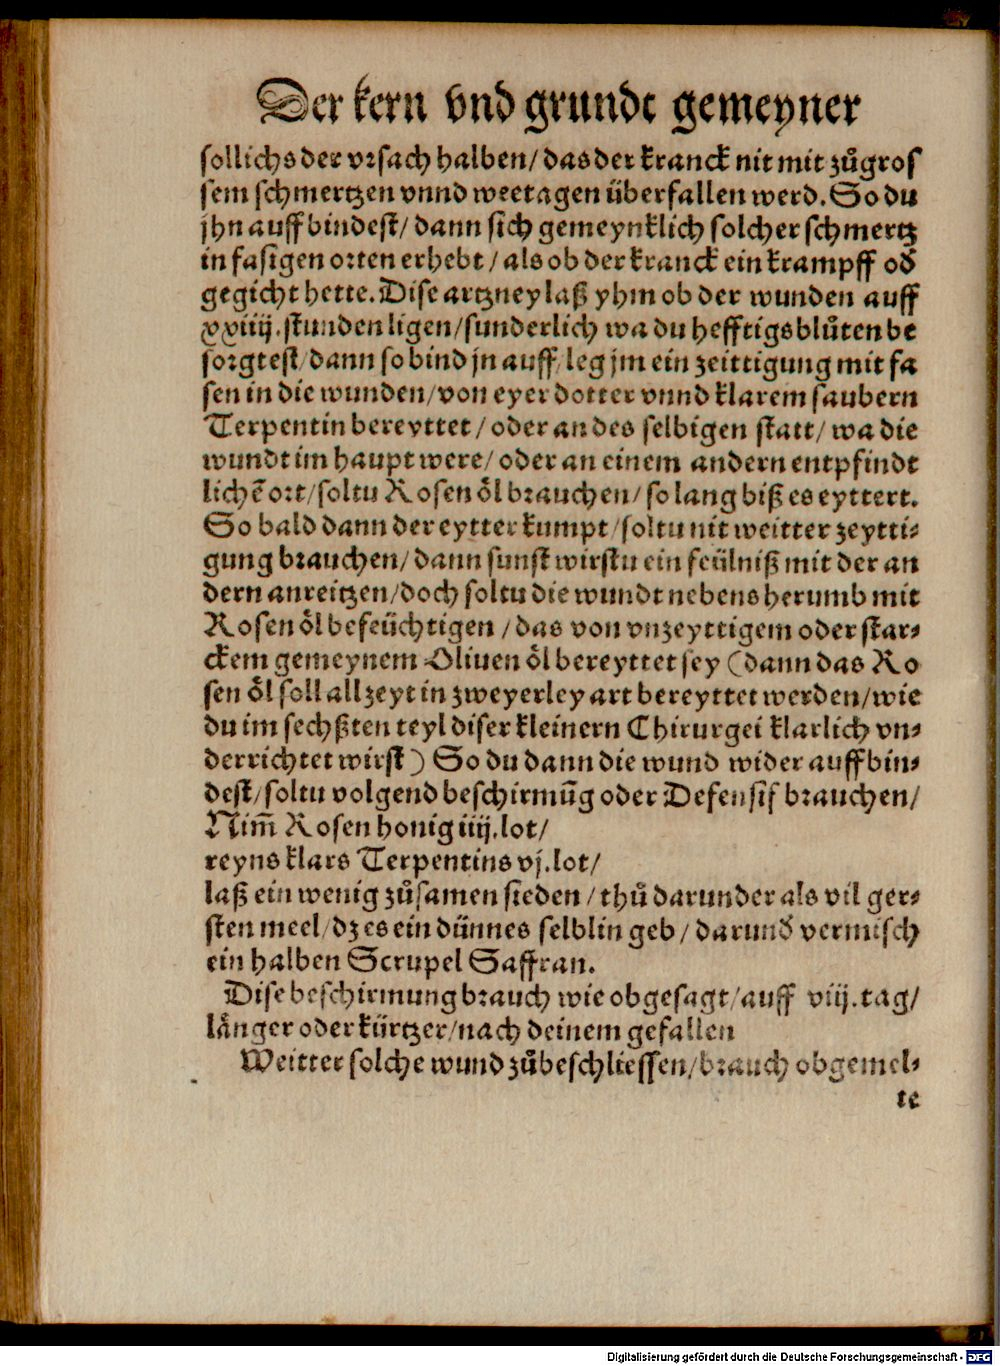 Der kern vnd grundt gemeyner
sollichs der vrsach halben/ das der kranck nit mit zůgros
sem schmertzen vnnd weetagen überfallen werd. So du
jhn auff bindest/ dann sich gemeynklich solcher schmertz
in fasigen orten erhebt/ als ob der kranck ein krampff od̕
gegicht hette. Dise artzney laß yhm ob der wunden auff
xxiiij. stunden ligen/ sunderlich wa du hefftigs blůten be
sorgtest/ dann so bind jn auff/ leg jm ein zeittigung mit fa
sen in die wunden/ von eyer dotter vnnd klarem saubern
Terpentin bereyttet/ oder an des selbigen statt/ wa die
wundt im haupt were/ oder an einem andern entpfindt
lichē ort/ soltu Rosen öl brauchen/ so lang biß es eyttert.
So bald dann der eytter kumpt/ soltu nit weitter zeytti⸗
gung brauchen/ dann sunst wirstu ein feülniß mit der an
dern anreitzen/ doch soltu die wundt nebens herumb mit
Rosen öl befeüchtigen/ das von vnzeyttigem oder star⸗
ckem gemeynem Oliuen öl bereyttet sey (dann das Ro
sen öl soll allzeyt in zweyerley art bereyttet werden/ wie
du im sechßten teyl diser kleinern Chirurgei klarlich vn⸗
derrichtet wirst) So du dann die wund wider auffbin⸗
dest/ soltu volgend beschirmūg oder Defensif brauchen/
Nim̄ Rosen honig iiij. lot/
reyns klars Terpentins vj. lot/
laß ein wenig zůsamen sieden/ thů darunder als vil ger⸗
sten meel/ dz es ein dünnes selblin geb/ darund̕ vermisch
ein halben Scrupel Saffran.
Dise beschirmung brauch wie obgesagt/ auff viij. tag/
länger oder kürtzer/ nach deinem gefallen
Weitter solche wund zůbeschliessen/ brauch obgemel⸗
te
Digitalisierung gefördert durch die Deutsche Forschungsgemeinschaft - DFG